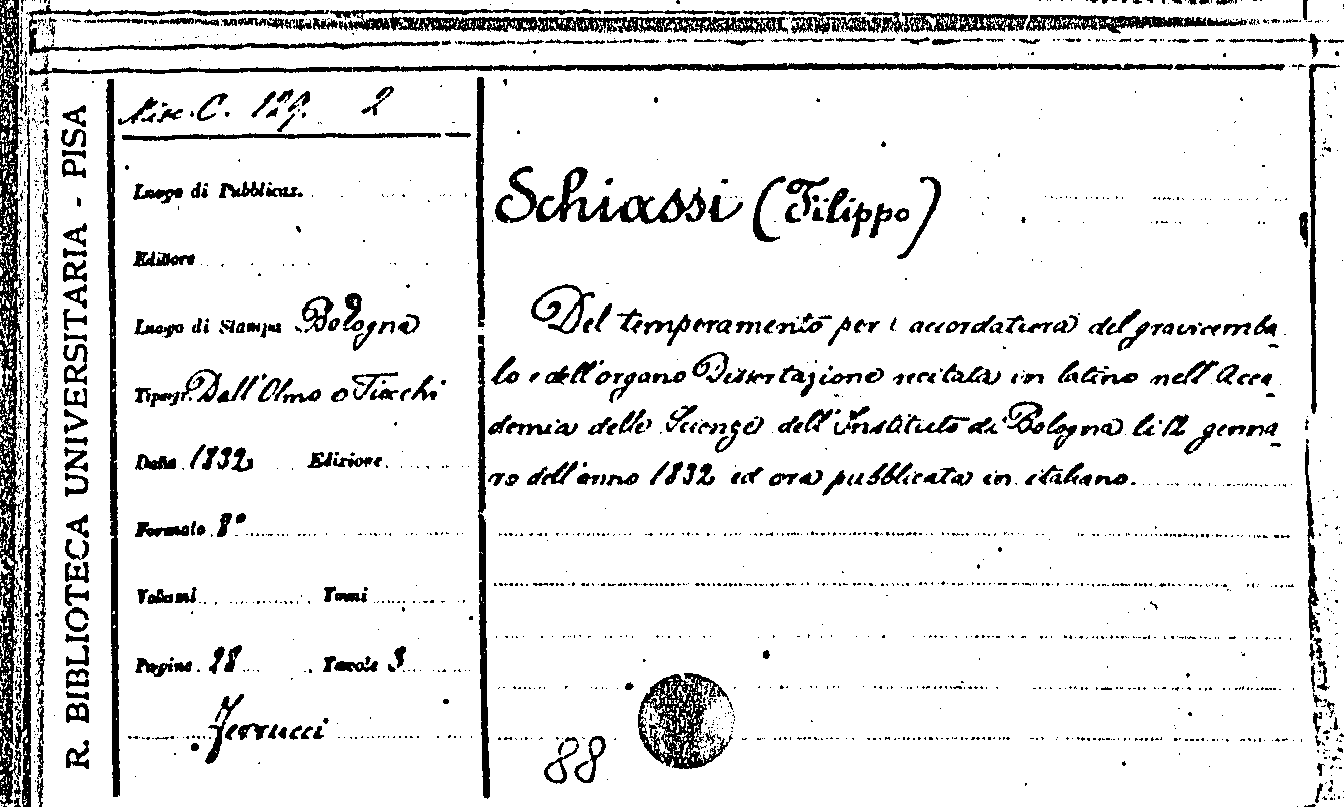 R. BIBLIOTECA UNIVERSITARIA - PISA
Misc. C. 129. 2
Luogo di Pubblicaz.
Editore
Luogo di Stampa Bologna
Tipogr. Dall'Olmo e Tiocchi
Data 1832 Edizione
Formato 8°
Volumi Tomi
Pagine 28 Tavole 3
Ferrucci
Schiassi (Filippo)
Del temperamento per l accordatura del gravicemba
lo e dell'organo Dissertazione recitata in latino nell'Acca
demia delle Scienze dell'Instituto di Bologna li 12 genna
ro dell'anno 1832 ed ora pubblicata in italiano.
88